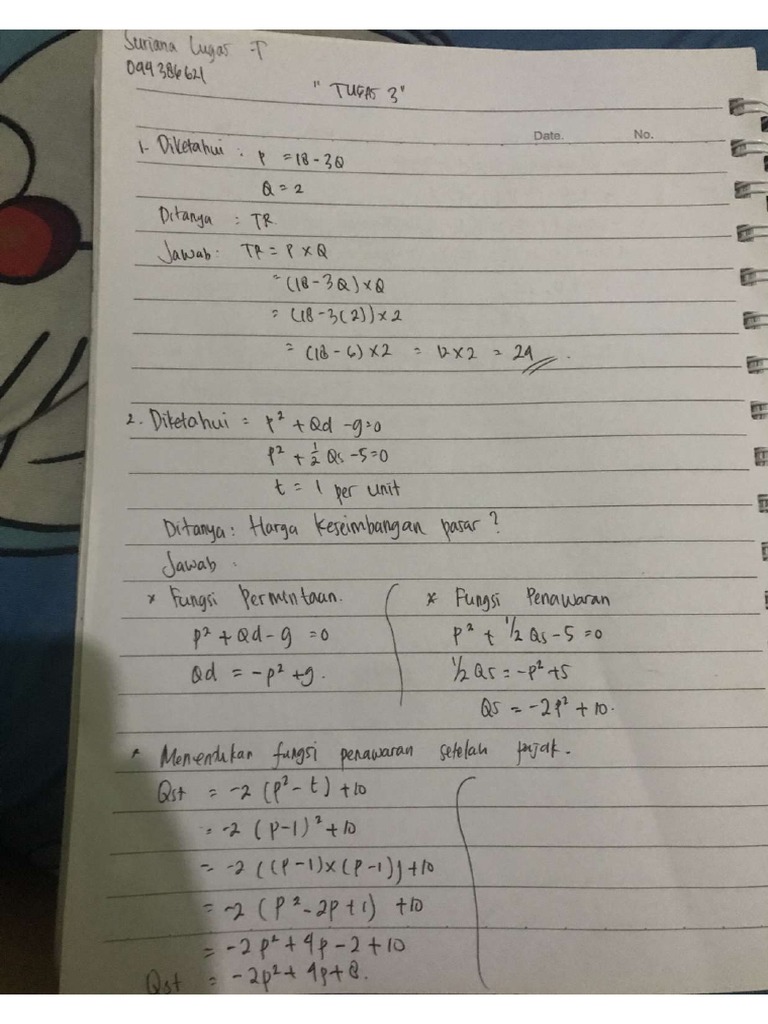 Suriana Lugas -T
044386621
"TUGAS 3"
Date. No.
1. Diketahui : P = 18 - 3Q
Q = 2
Ditanya : TR
Jawab : TR = P x Q
= (18 - 3Q) x Q
= (18 - 3(2)) x 2
= (18 - 6) x 2 = 12 x 2 = 24 .
2. Diketahui = P² + Qd - 9 = 0
P² + 1/2 Qs - 5 = 0
t = 1 per unit
Ditanya : Harga keseimbangan pasar ?
Jawab :
* Fungsi Permintaan.
P² + Qd - 9 = 0
Qd = -P² + 9.
* Fungsi Penawaran
P² + 1/2 Qs - 5 = 0
1/2 Qs = -P² + 5
Qs = -2P² + 10.
* Menentukan fungsi penawaran setelah pajak.
Qst = -2 (P² - t) + 10
= -2 (P - 1)² + 10
= -2 ((P - 1) x (P - 1)) + 10
= -2 (P² - 2P + 1) + 10
= -2P² + 4P - 2 + 10
Qst = -2P² + 4P + 8.